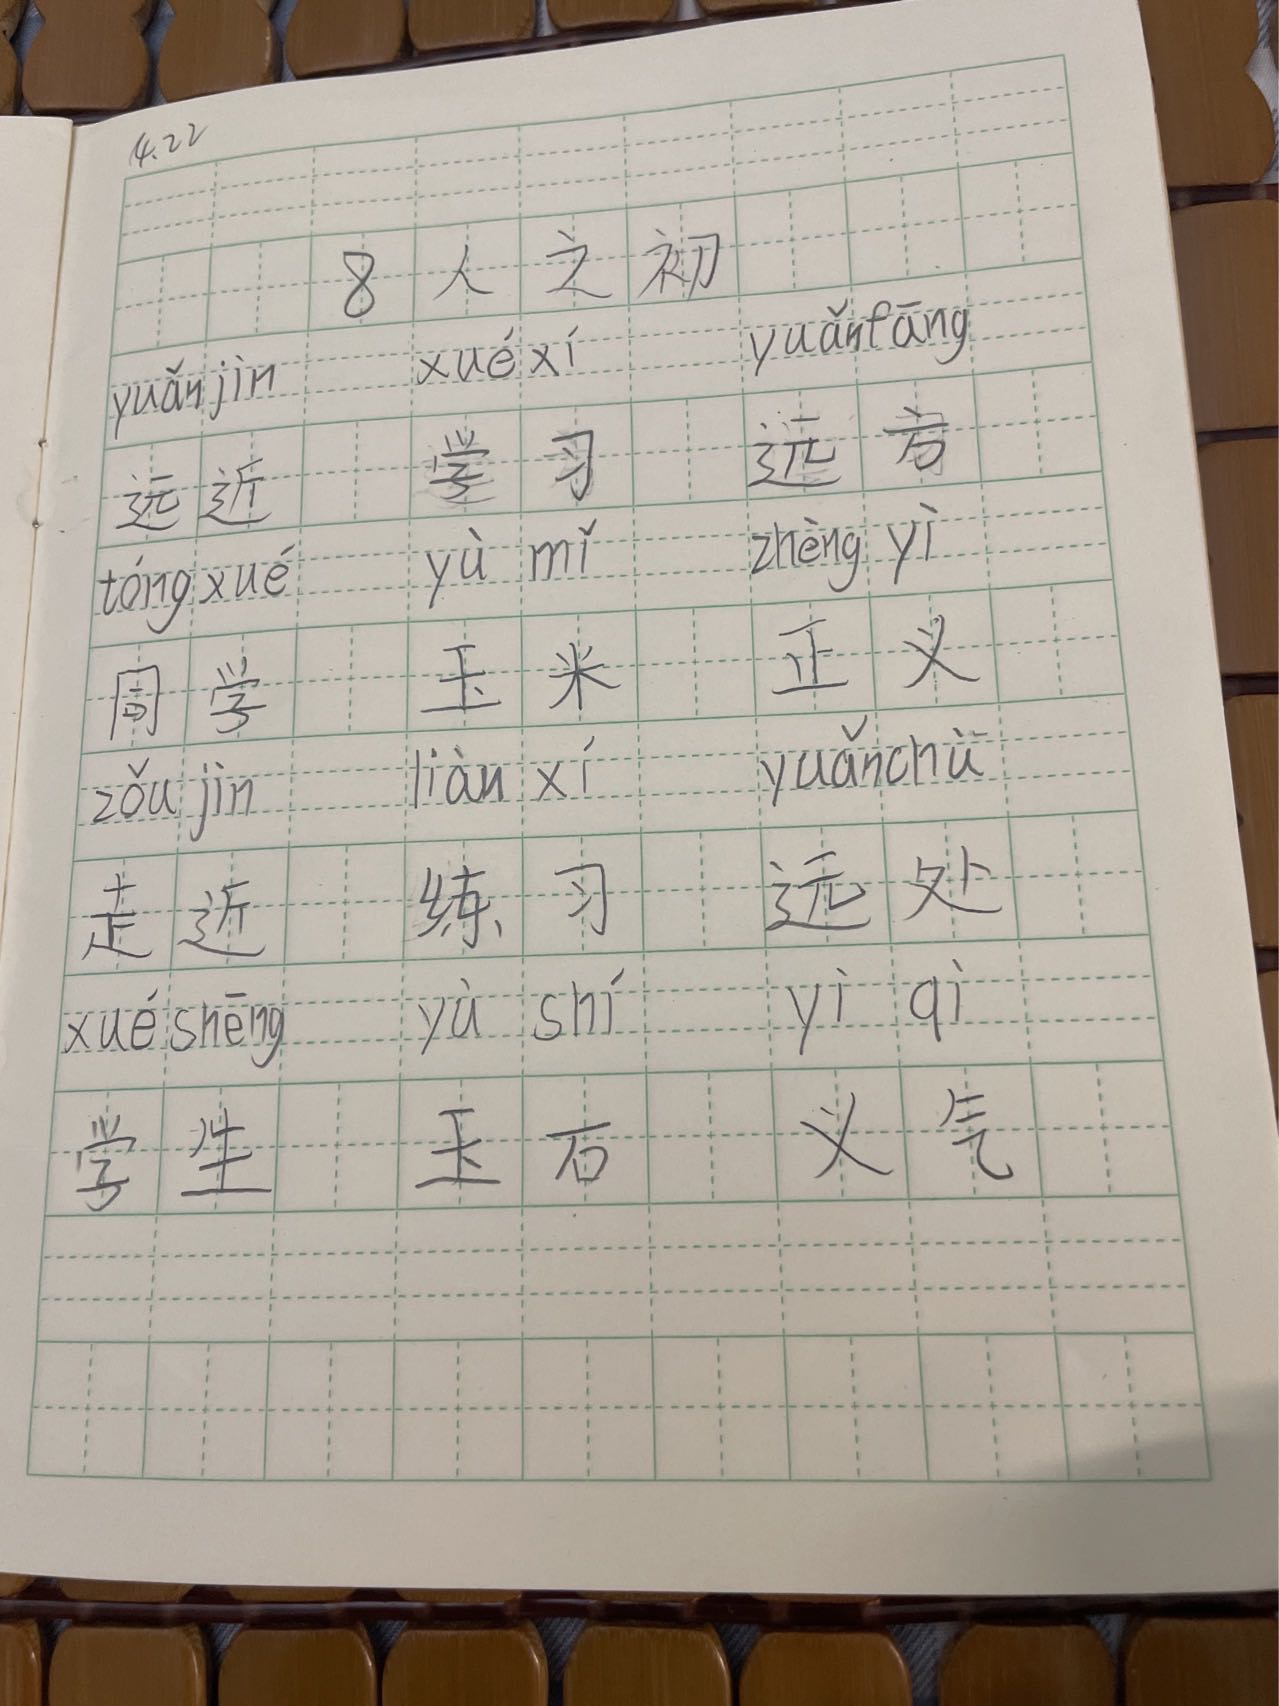 4.22
8 人之初
yuǎn jìn xué xí yuǎn fāng
远近 学习 远方
tóng xué yù mǐ zhèng yì
同学 玉米 正义
zǒu jìn liàn xí yuǎn chù
走近 练习 远处
xué shēng yù shí yì qì
学生 玉石 义气